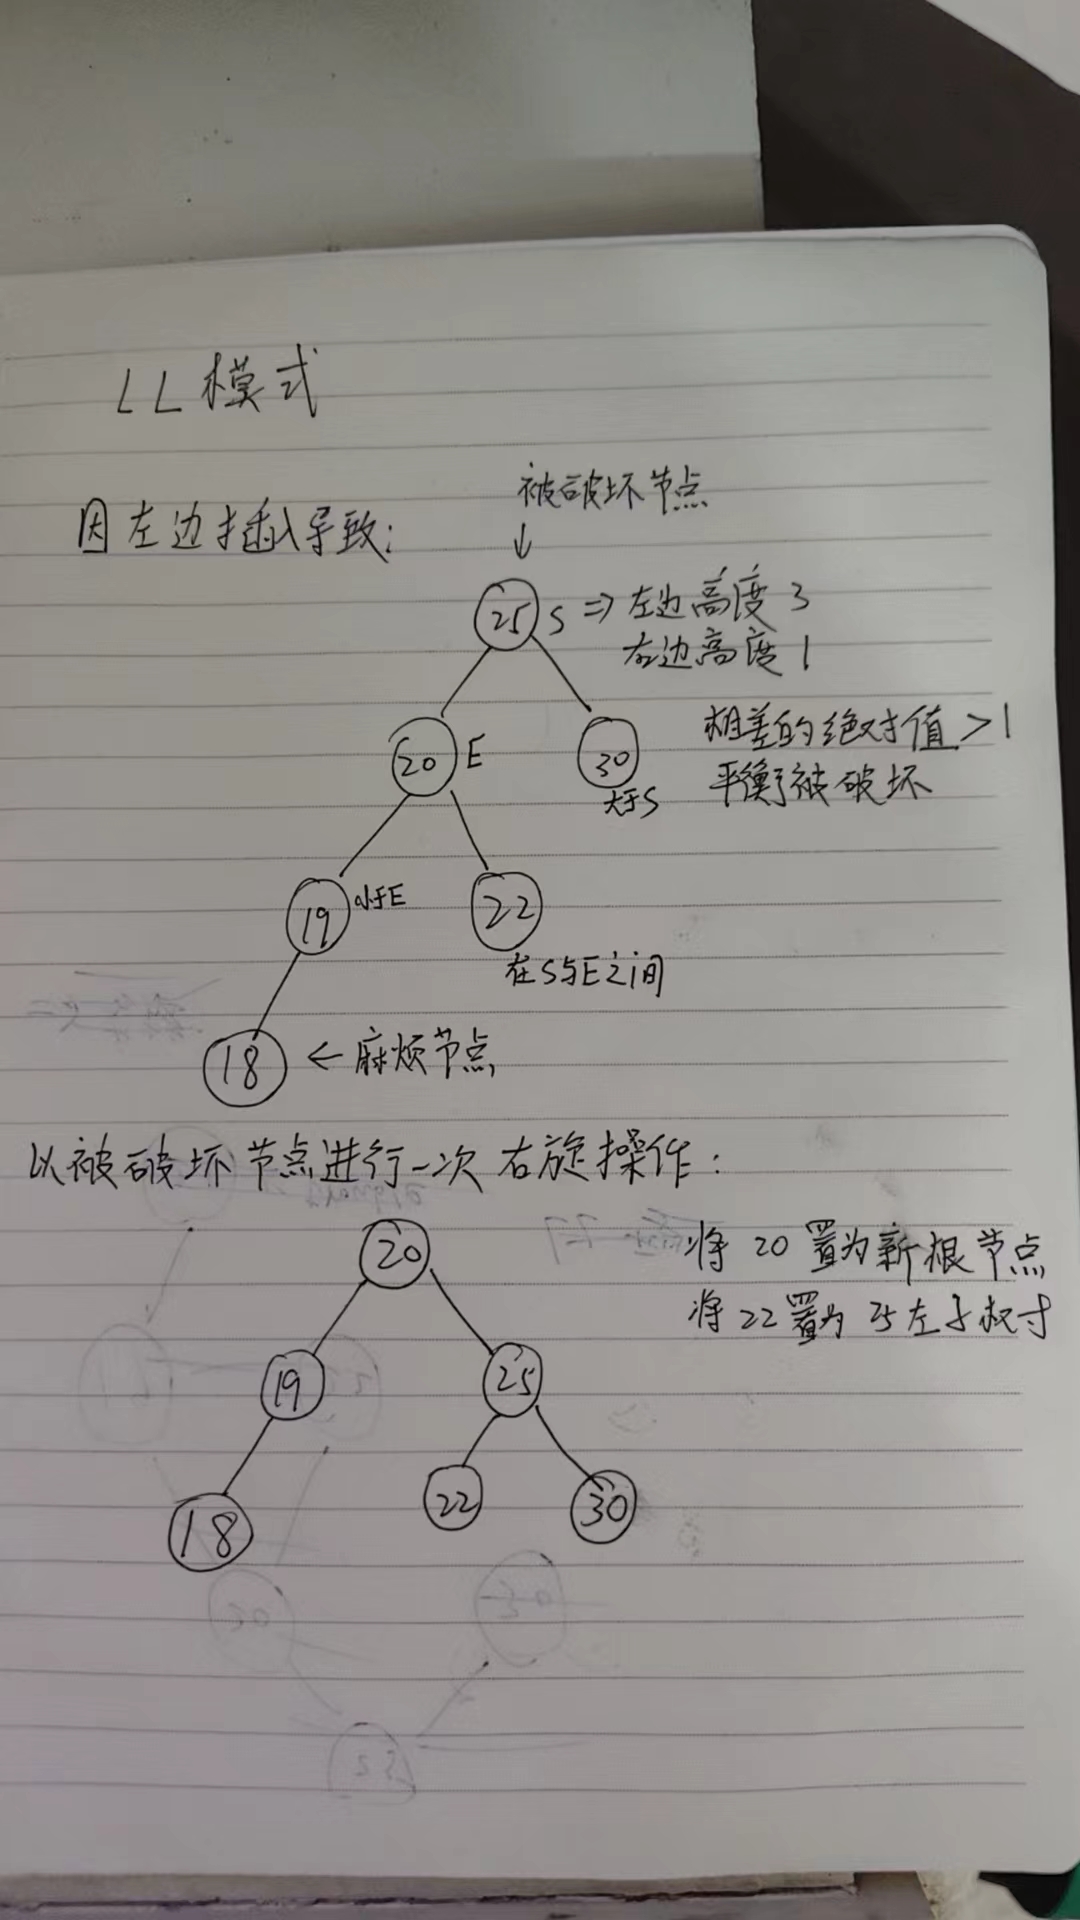 LL模式
被破坏节点
因左边插入导致:
↓
25 S ⇒ 左边高度 3
右边高度 1
20 E
30
大于S
相差的绝对值 > 1
平衡被破坏
19 小于E
22
在S与E之间
18 ← 麻烦节点
以被破坏节点进行一次右旋操作:
20
将 20 置为新根节点
将 22 置为 25左子树
19
25
18
22
30